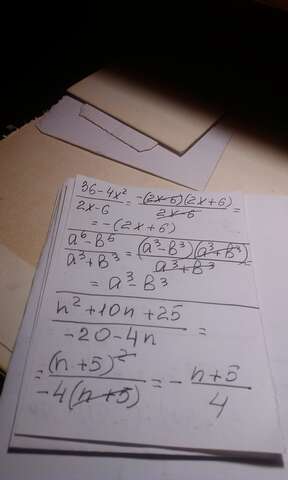 36-4x² / 2x-6 = -(2x-6)(2x+6) / 2x-6 =
= -(2x+6)
a⁶-b⁶ / a³+b³ = (a³-b³)(a³+b³) / a³+b³
= a³-b³
n²+10n+25 / -20-4n =
= (n+5)² / -4(n+5) = - n+5 / 4